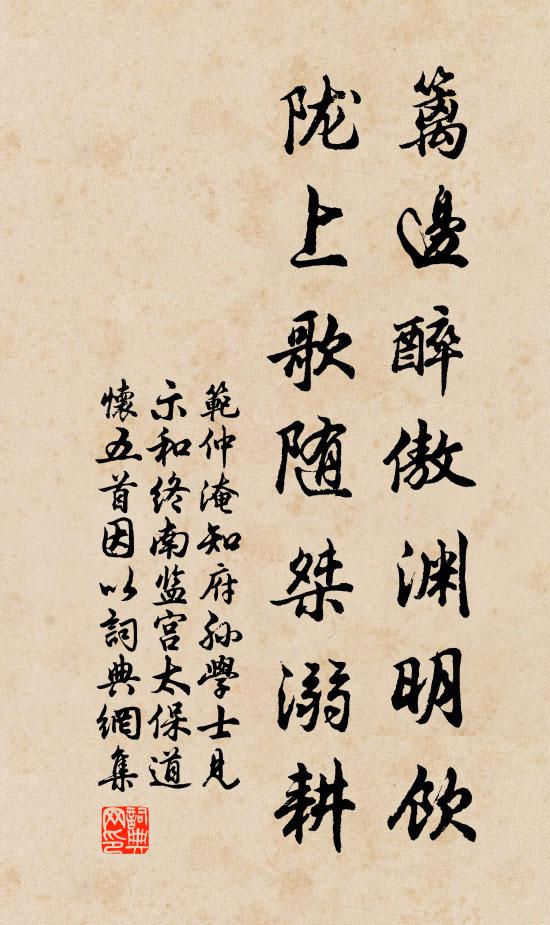 籬邊醉傲渊明飲
陇上歌随桀溺耕
範仲淹知府孙學士見
示和终南监宫太保道
懷五首因以詞典網集
詞典网印